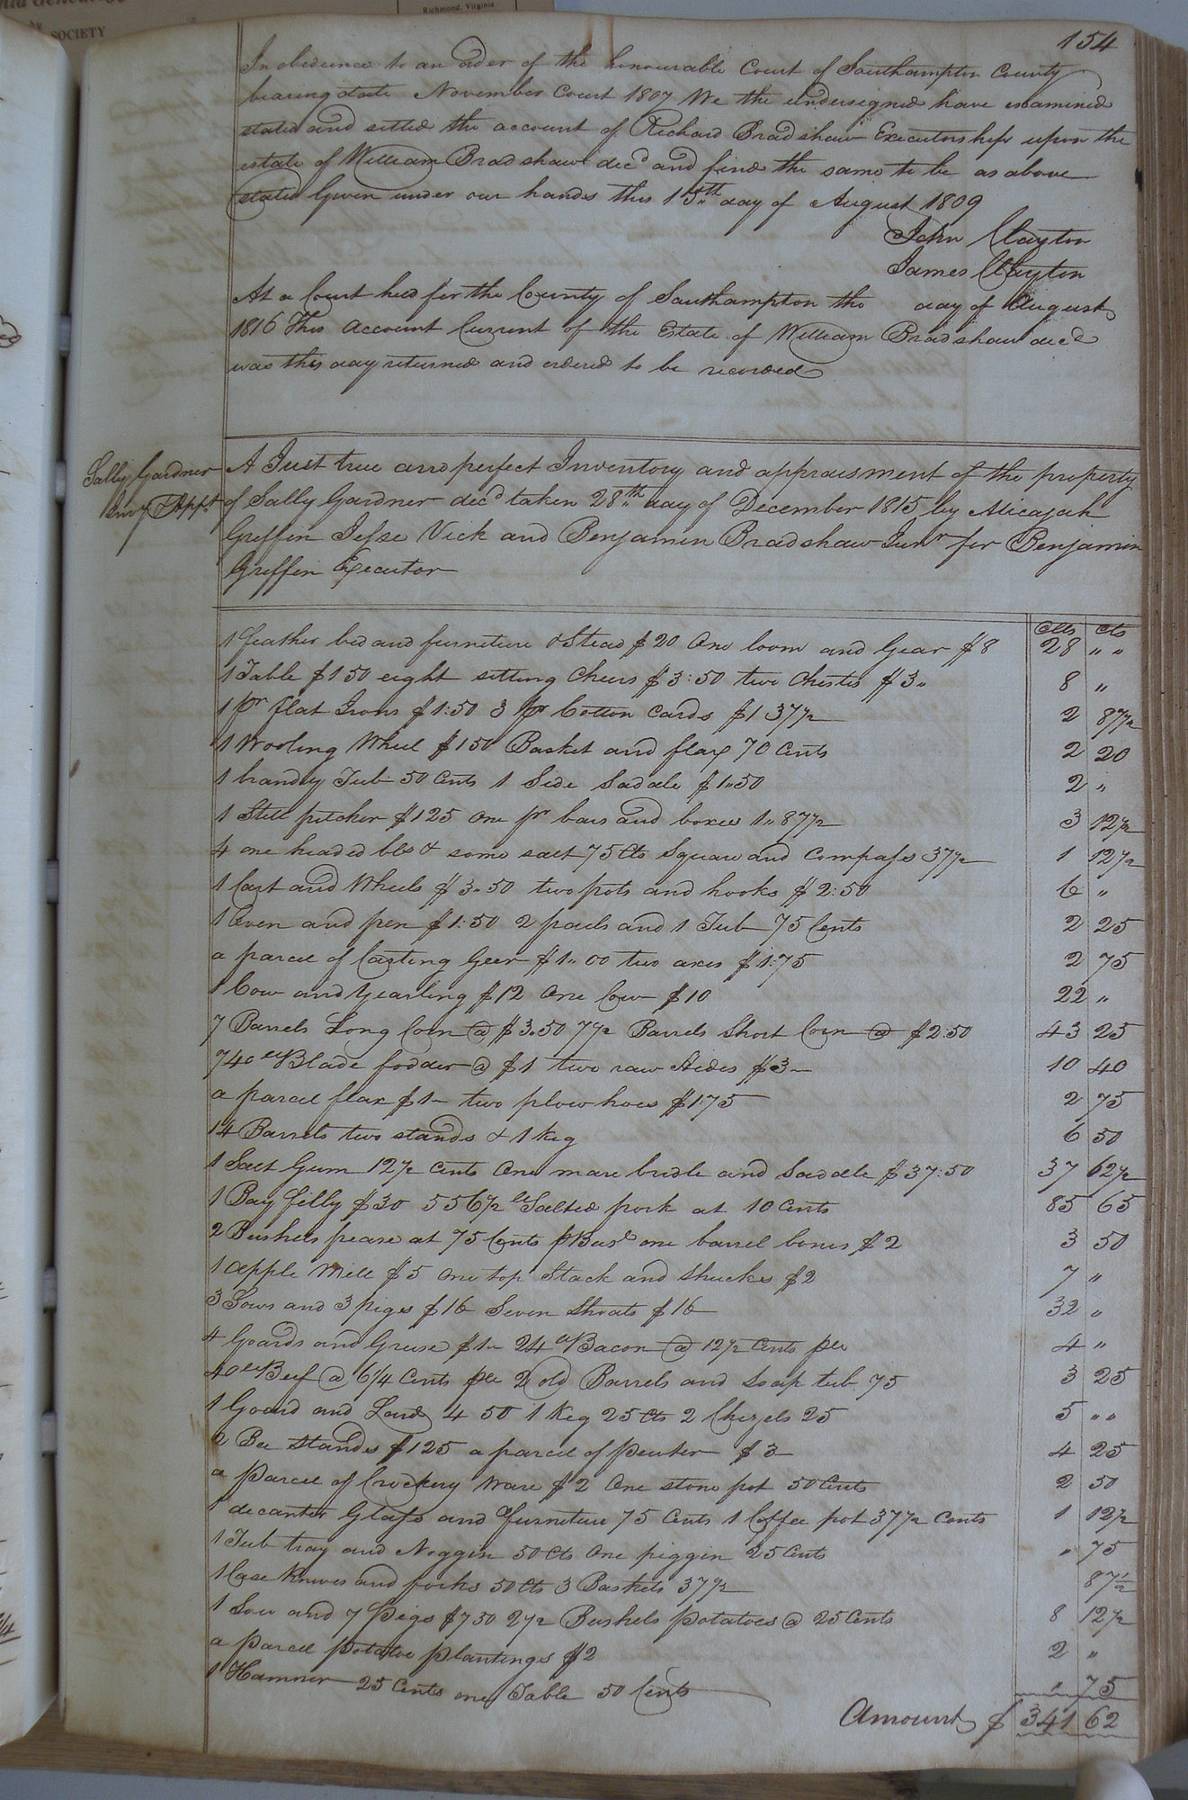 SOCIETY
Richmond, Virginia
154
In obedience to an order of the honourable Court of Southampton County
bearing date November Court 1807 We the undersigned have examined
stated and settled the account of Richard Bradshaw Executorship upon the
estate of William Bradshaw decd and find the same to be as above
stated Given under our hands this 15th day of August 1809
John Clayton
James Clayton
At a Court held for the County of Southampton the day of August
1816 This Account Current of the Estate of William Bradshaw decd
was this day returned and ordered to be recorded
Sally Gardner
Invy & Appt
A Just true and perfect Inventory and appraisment of the property
of Sally Gardner decd taken 28th day of December 1815 by Micajah
Griffin Jesse Vick and Benjamin Bradshaw Junr for Benjamin
Griffin Executor
Dlls cts
1 feather bed and furniture & Stead $20 One loom and Gear $8 28 " "
1 Table $1 50 eight sitting Cheers $3:50 two Chestes $3" 8 "
1 pr flat Irons $1:50 3 pr Cotton Cards $1 37½ 2 87½
1 Wooling Wheel $1 50 Basket and flax 70 Cents 2 20
1 handy Tub 50 Cents 1 Side Saddle $1"50 2 "
1 Still pitcher $1 25 one pr bars and boxes 1"87½ 3 12½
4 one headed bls & some salt 75 Cts Square and Compass 37½ 1 12½
1 Cart and Wheels $3.50 two pots and hooks $2:50 6 "
1 Oven and pen $1:50 2 pails and 1 Tub 75 Cents 2 25
a parcel of Carting Geer $1"00 two axes $1:75 2 75
1 Cow and Yearling $12 One Cow $10 22 "
7 Barrels Long Corn @ $3.50 7½ Barrels Short Corn @ $2.50 43 25
740 lb Blade fodder @ $1 two raw Hides $3 10 40
a parcel flax $1 two plow hoes $1 75 2 75
14 Barrels two stands & 1 Keg 6 50
1 Salt Gum 12½ Cents One mare bridle and Saddle $37:50 37 62½
1 Bay filly $30 556½ lb Salted pork at 10 Cents 85 65
2 Bushels pease at 75 Cents p Busl one barrel bones $2 3 50
1 apple Mill $5 One top Stack and Shucks $2 7 "
3 Sows and 3 pigs $16 Seven Shoats $16 32 "
4 Goards and Grease $1 24 lb Bacon @ 12½ Cents 4 "
40 lb Beef @ 6¼ Cents 2 old Barrels and Soap tub 75 3 25
1 Goard and Lard 4 50 1 Keg 25 Cts 2 Chizels 25 5 " "
2 Bee stands $1 25 a parcel of Peuter $3 4 25
a Parcel of Crockery Ware $2 One stone pot 50 Cents 2 50
1 decanter Glass and furniture 75 Cents 1 Coffee pot 37½ Cents 1 12½
1 Tub tray and Noggin 50 Cts One piggin 25 Cents " 75
1 Case Knives and forks 50 Cts 3 Baskets 37½ 87½
1 Sow and 7 Pigs $7 50 2½ Bushels Potatoes @ 25 Cents 8 12½
a Parcel Potatoe plantings $2 2 "
1 Hammer 25 Cents one Table 50 Cents " 75
Amount $ 341 62